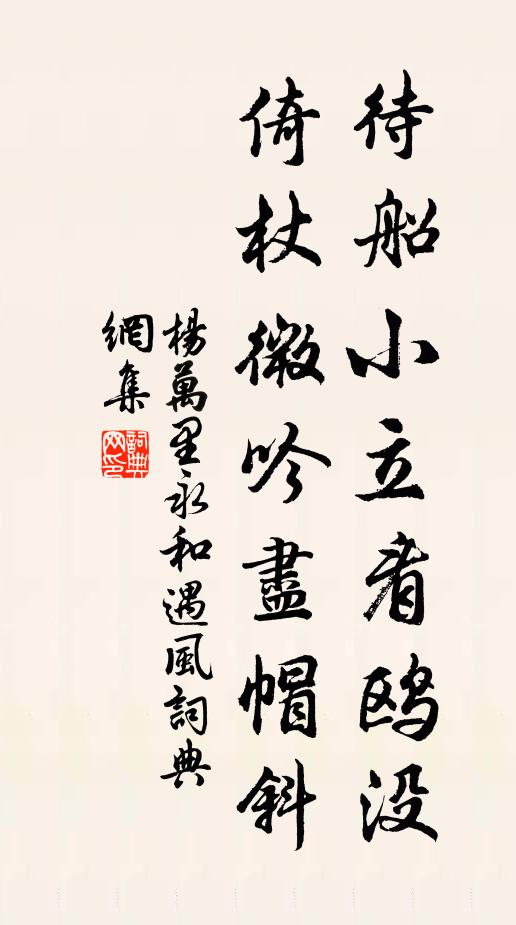 待船小立看鸥没
倚杖微吟盡帽斜
楊萬里永和遇風詞典
網集
詞典網印